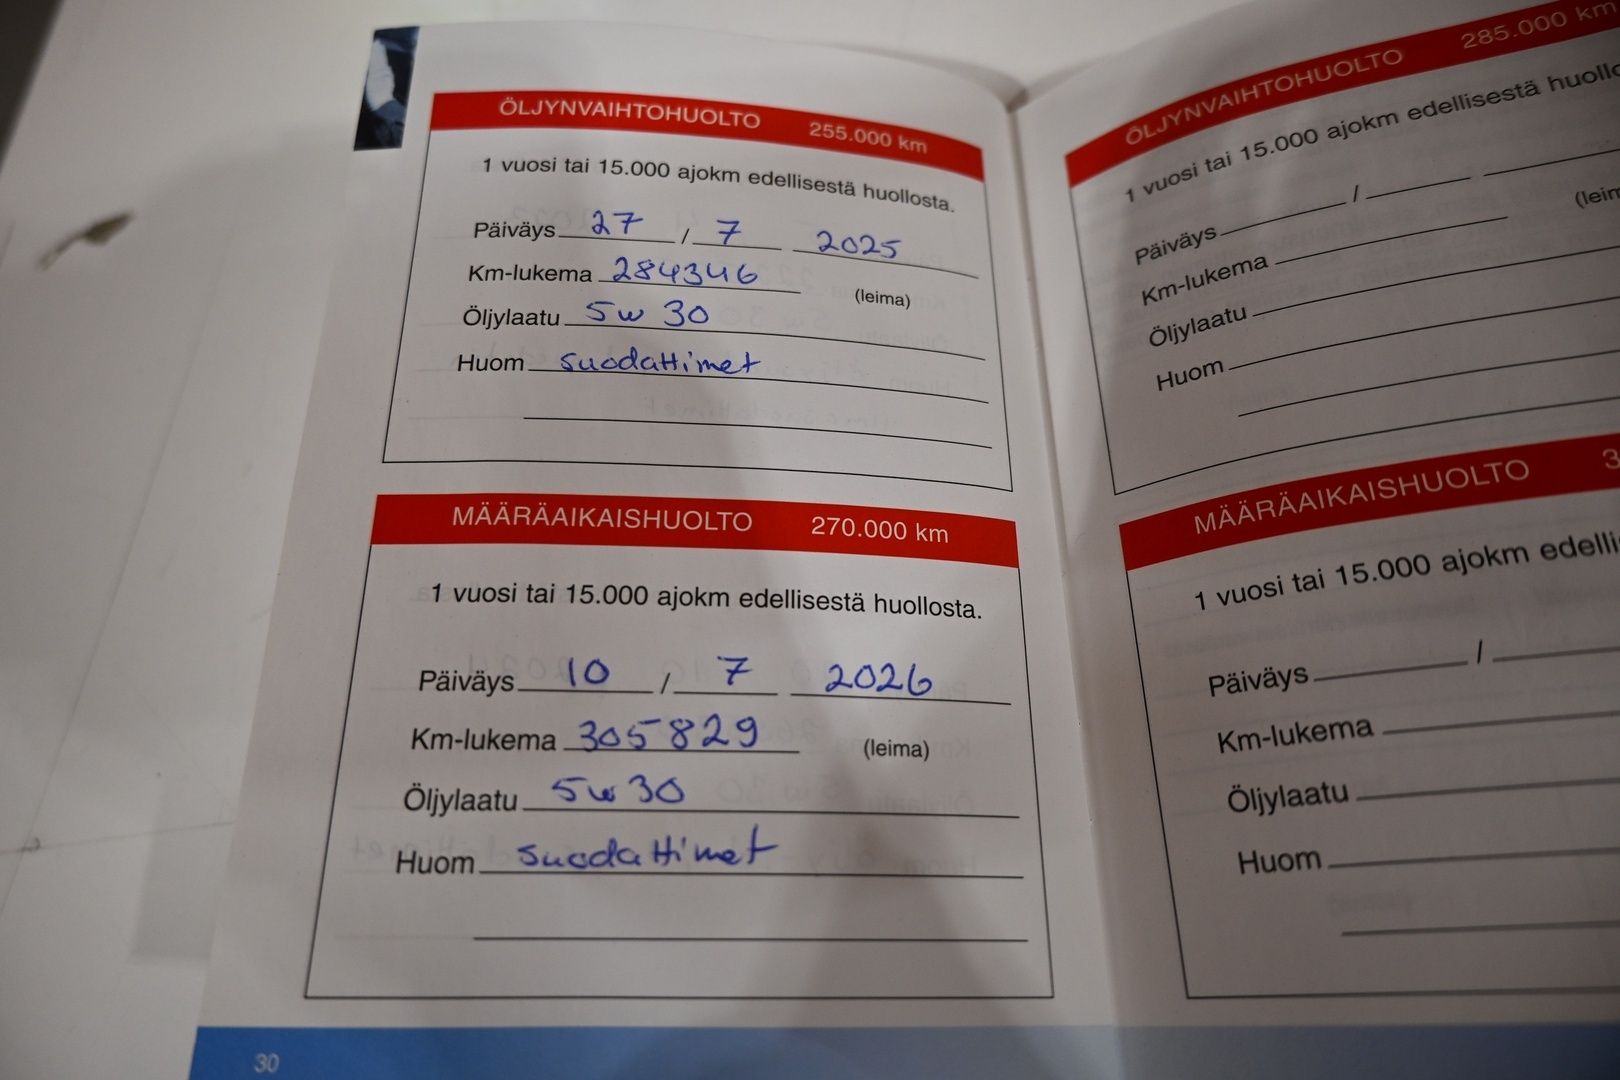 ÖLJYNVAIHTOHUOLTO 255.000 km
1 vuosi tai 15.000 ajokm edellisestä huollosta.
Päiväys 27 / 7 2025
Km-lukema 284346 (leima)
Öljylaatu 5w 30
Huom suodattimet
MÄÄRÄAIKAISHUOLTO 270.000 km
1 vuosi tai 15.000 ajokm edellisestä huollosta.
Päiväys 10 / 7 2026
Km-lukema 305829 (leima)
Öljylaatu 5w30
Huom suodattimet
30
ÖLJYNVAIHTOHUOLTO 285.000 km
1 vuosi tai 15.000 ajokm edellisestä
Päiväys /
Km-lukema
Öljylaatu
Huom
MÄÄRÄAIKAISHUOLTO
1 vuosi tai 15.000 ajokm
Päiväys /
Km-lukema
Öljylaatu
Huom